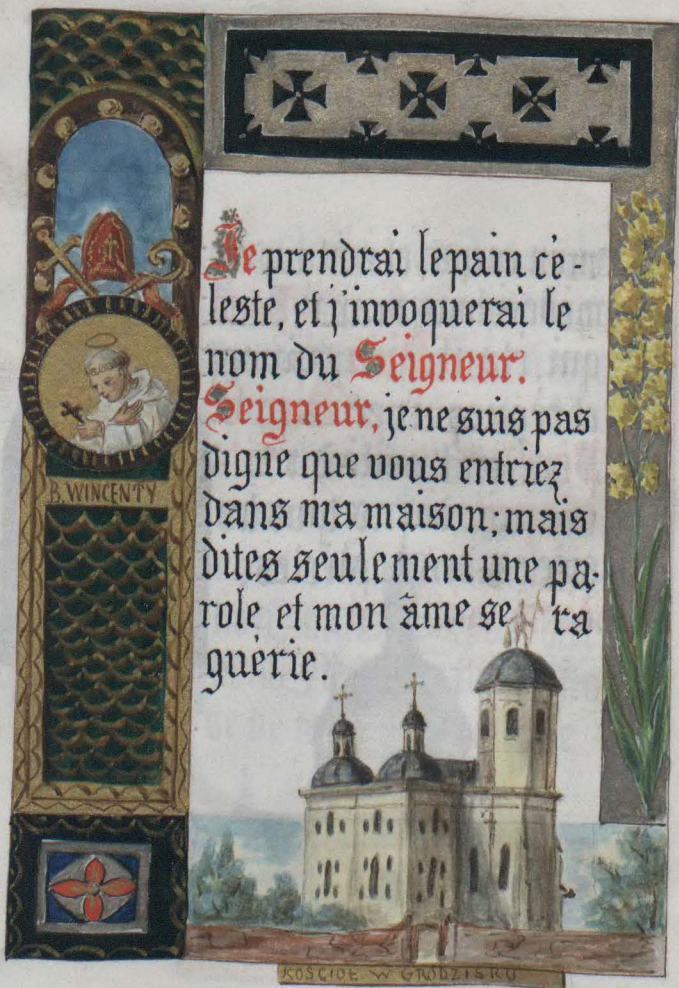 Je prendrai le pain cé-
leste, et j'invoquerai le
nom du Seigneur.
Seigneur, je ne suis pas
digne que vous entriez
dans ma maison; mais
dites seulement une pa-
role et mon âme sera
guérie.
B. WINCENTY
KOŚCIOŁ W GRODZISKU